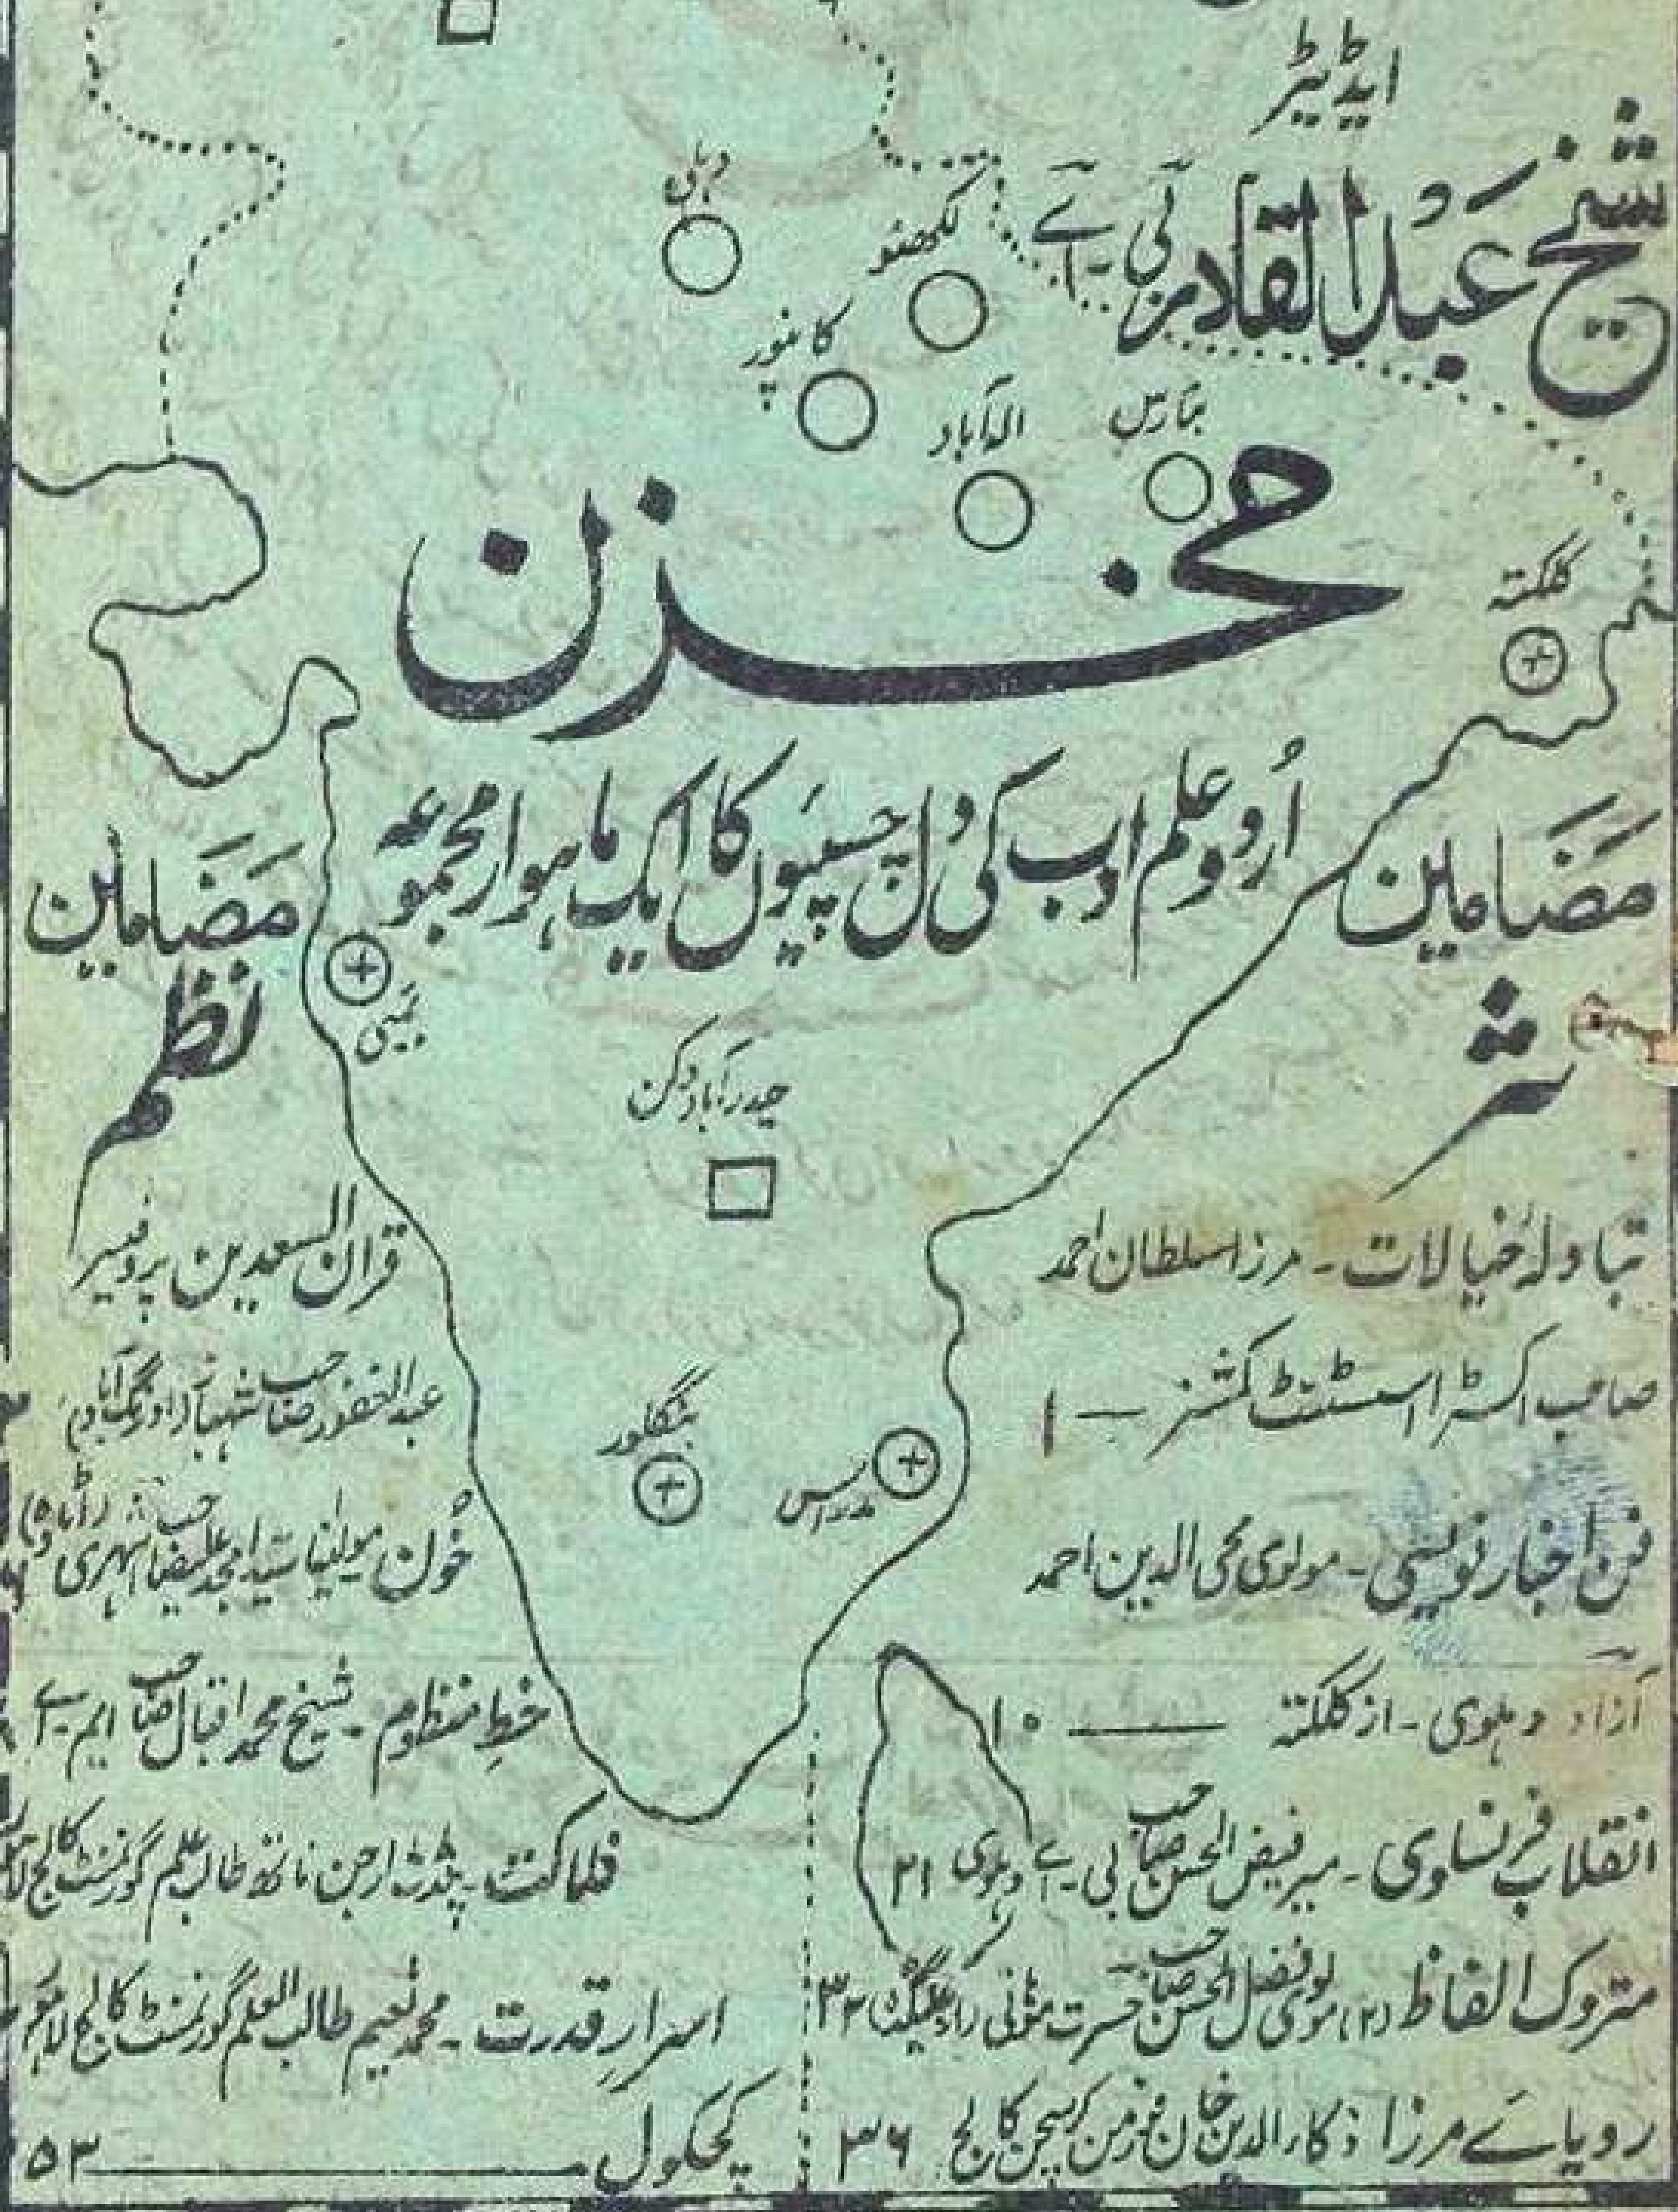 ایڈیٹر
شیخ عبدالقادر بی-اے
دہلی
لکھنؤ
کانپور
الہ آباد
بنارس
کلکتہ
مخزن
اُردو علم ادب کی دل چسپیوں کا ایک ماہوار مجموعہ
بمبئی
حیدرآباد دکن
بنگلور
مدراس
مضامین
نثر
تبادلہ خیالات - مرزا سلطان احمد
صاحب اکسٹرا اسسٹنٹ کمشنر — ۱
فن اخبار نویسی - مولوی محی الدین احمد
آزاد دہلوی - از کلکتہ — ۱۰
انقلاب فرنساوی - میر فیض الحسن صاحب بی-اے دہلوی ۲۱
متروک الفاظ (۲) مولوی فضل الحسن صاحب حسرت موہانی ۳۲
رویائے مرزا ذکاءالدین خان فورمن کرسچن کالج ۳۶
مضامین
نظم
قران السعدین پروفیسر
عبدالغفور صاحب شہباز (اورنگ آباد)
خون مولینا سید امجد علی صاحب اشہری
خط منظوم - شیخ محمد اقبال صاحب ایم-اے
فلاکت - پنڈت ارجن ناتھ طالب علم گورنمنٹ کالج
اسرار قدرت - محمد نعیم طالب العلم گورنمنٹ کالج لاہور
کچکول — ۵۳